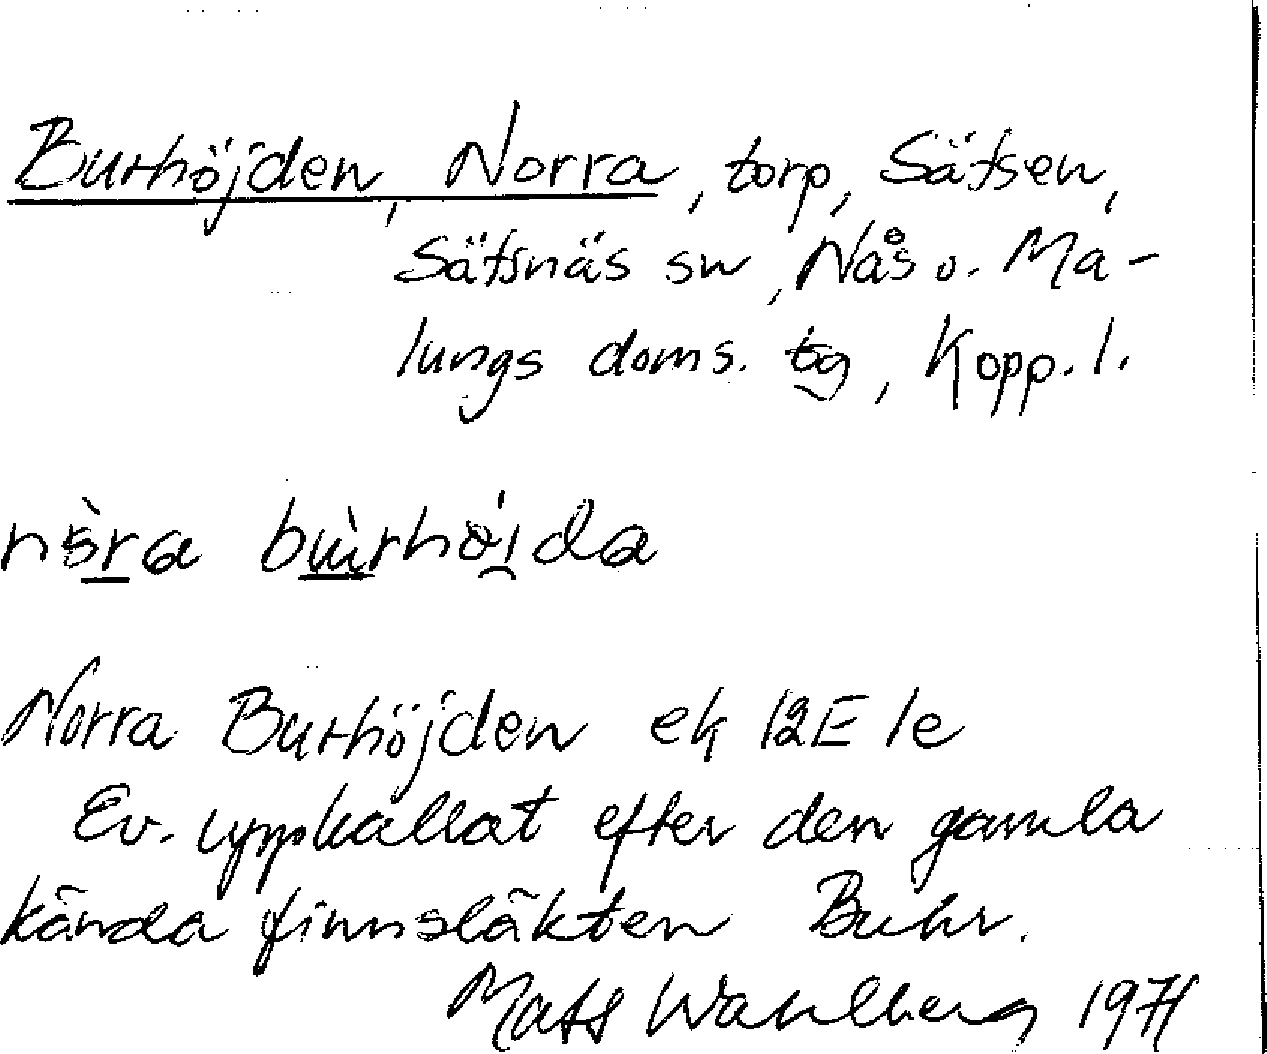 Burhöjden, Norra, torp, Sätsen,
Sätsnäs sn, Nås o. Ma-
lungs doms. tg, Kopp. l.
nòra bùrhö́i̯da
Norra Burhöjden ek 12E 1e
Ev. uppkallat efter den gamla
kända finnsläkten Buhr.
Mats Wahlberg 1971